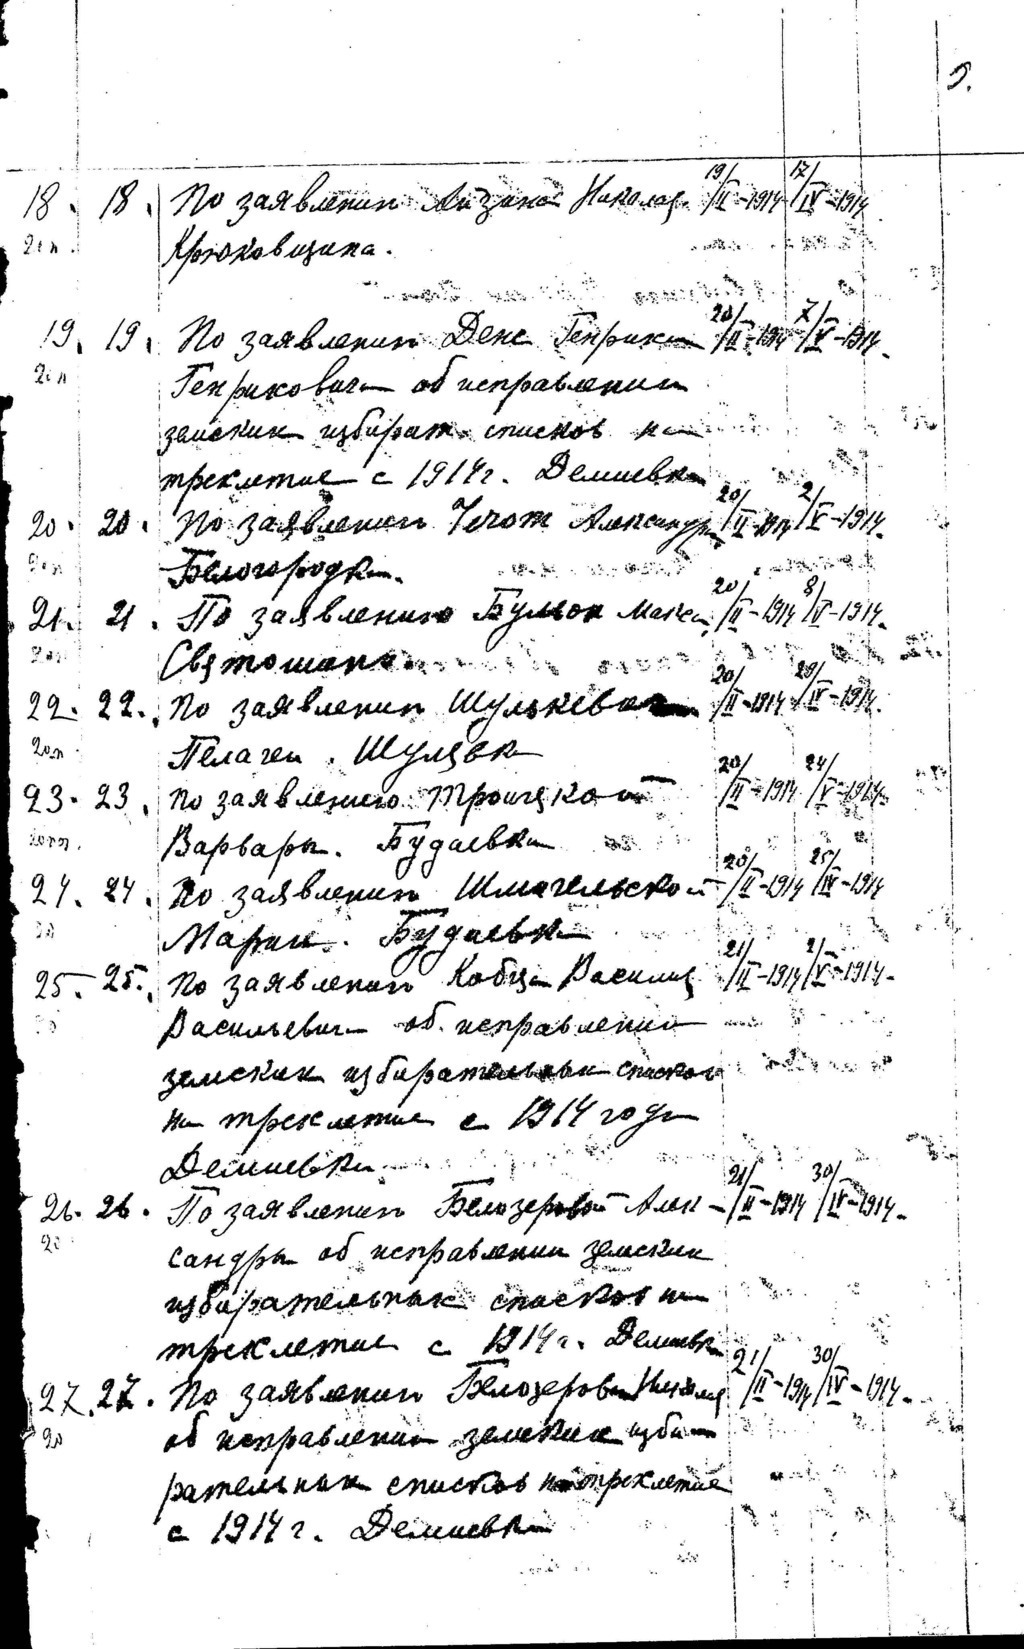 5.
18. 18. По заявлению Николая 19/II-1914 17/IV-1914
Крюковщина.
19. 19. По заявлению Денс Генрика 20/II-1914 7/V-1914.
Генриховича об исправлении
земских избират. списков на
трехлетие с 1914 г. Демиевка
20. 20. По заявлению Чечот Александра 20/II-1914 2/V-1914.
Белогородка.
21. 21. По заявлению Бульон Макса 20/II-1914 8/V-1914.
Святошино
22. 22. По заявлению Шулькевич 20/II-1914 29/IV-1914.
Пелагеи. Шулявка
23. 23. По заявлению Троицкой 20/II-1914 24/V-1914.
Варвары. Будаевка
24. 24. По заявлению Шмигельской 20/II-1914 25/IV-1914
Марии. Будаевка
25. 25. По заявлению Кобца Василия 21/II-1914 2/V-1914.
Васильевича об исправлении
земских избирательных списков
на трехлетие с 1914 года
Демиевка
26. 26. По заявлению Белозеровой Алек- 21/II-1914 30/IV-1914.
сандры об исправлении земских
избирательных списков на
трехлетие с 1914 г. Демиевка
27. 27. По заявлению Белозерова Николая 21/II-1914 30/IV-1914.
об исправлении земских изби-
рательных списков на трехлетие
с 1914 г. Демиевка